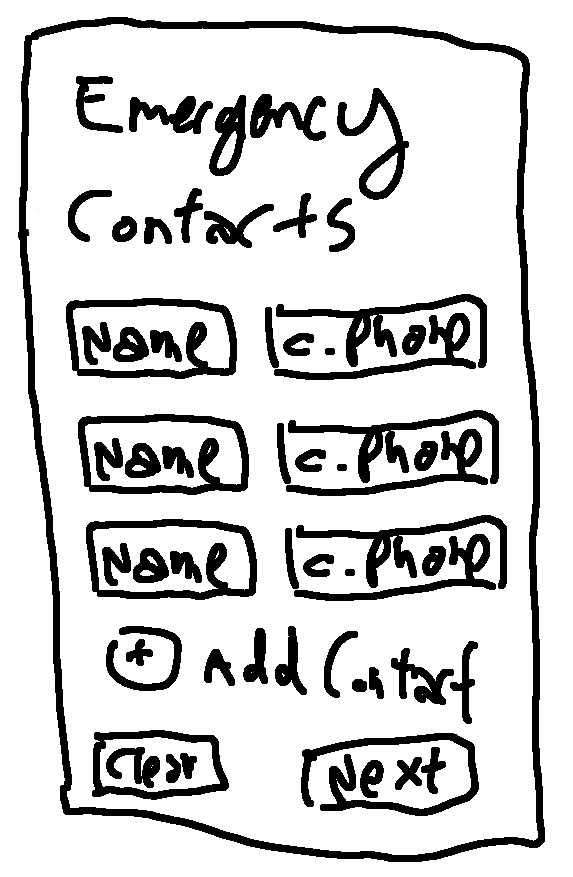 Emergency
Contacts
Name c. Phone
Name c. Phone
Name c. Phone
+ Add Contact
Clear Next